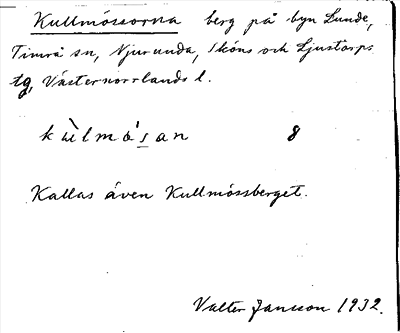 Kullmössorna berg på byn Lunde,
Timrå sn, Njurunda, Sköns och Ljustorps
tg, Västernorrlands l.
kùlmós̲an 8
Kallas även Kullmössberget.
Valter Jansson 1932.